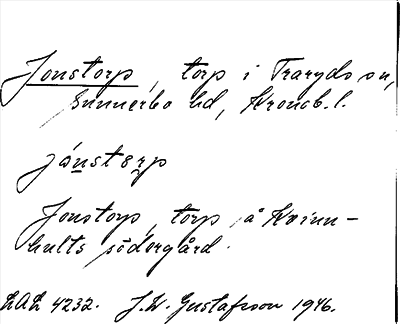 Jonstorp, torp i Traryds sn,
Sunnerbo hd, Kronob. l.
jónstərp
Jonstorp, torp å Kvinn-
hults södergård.
LAL 4232. J.W. Gustafsson 1946.